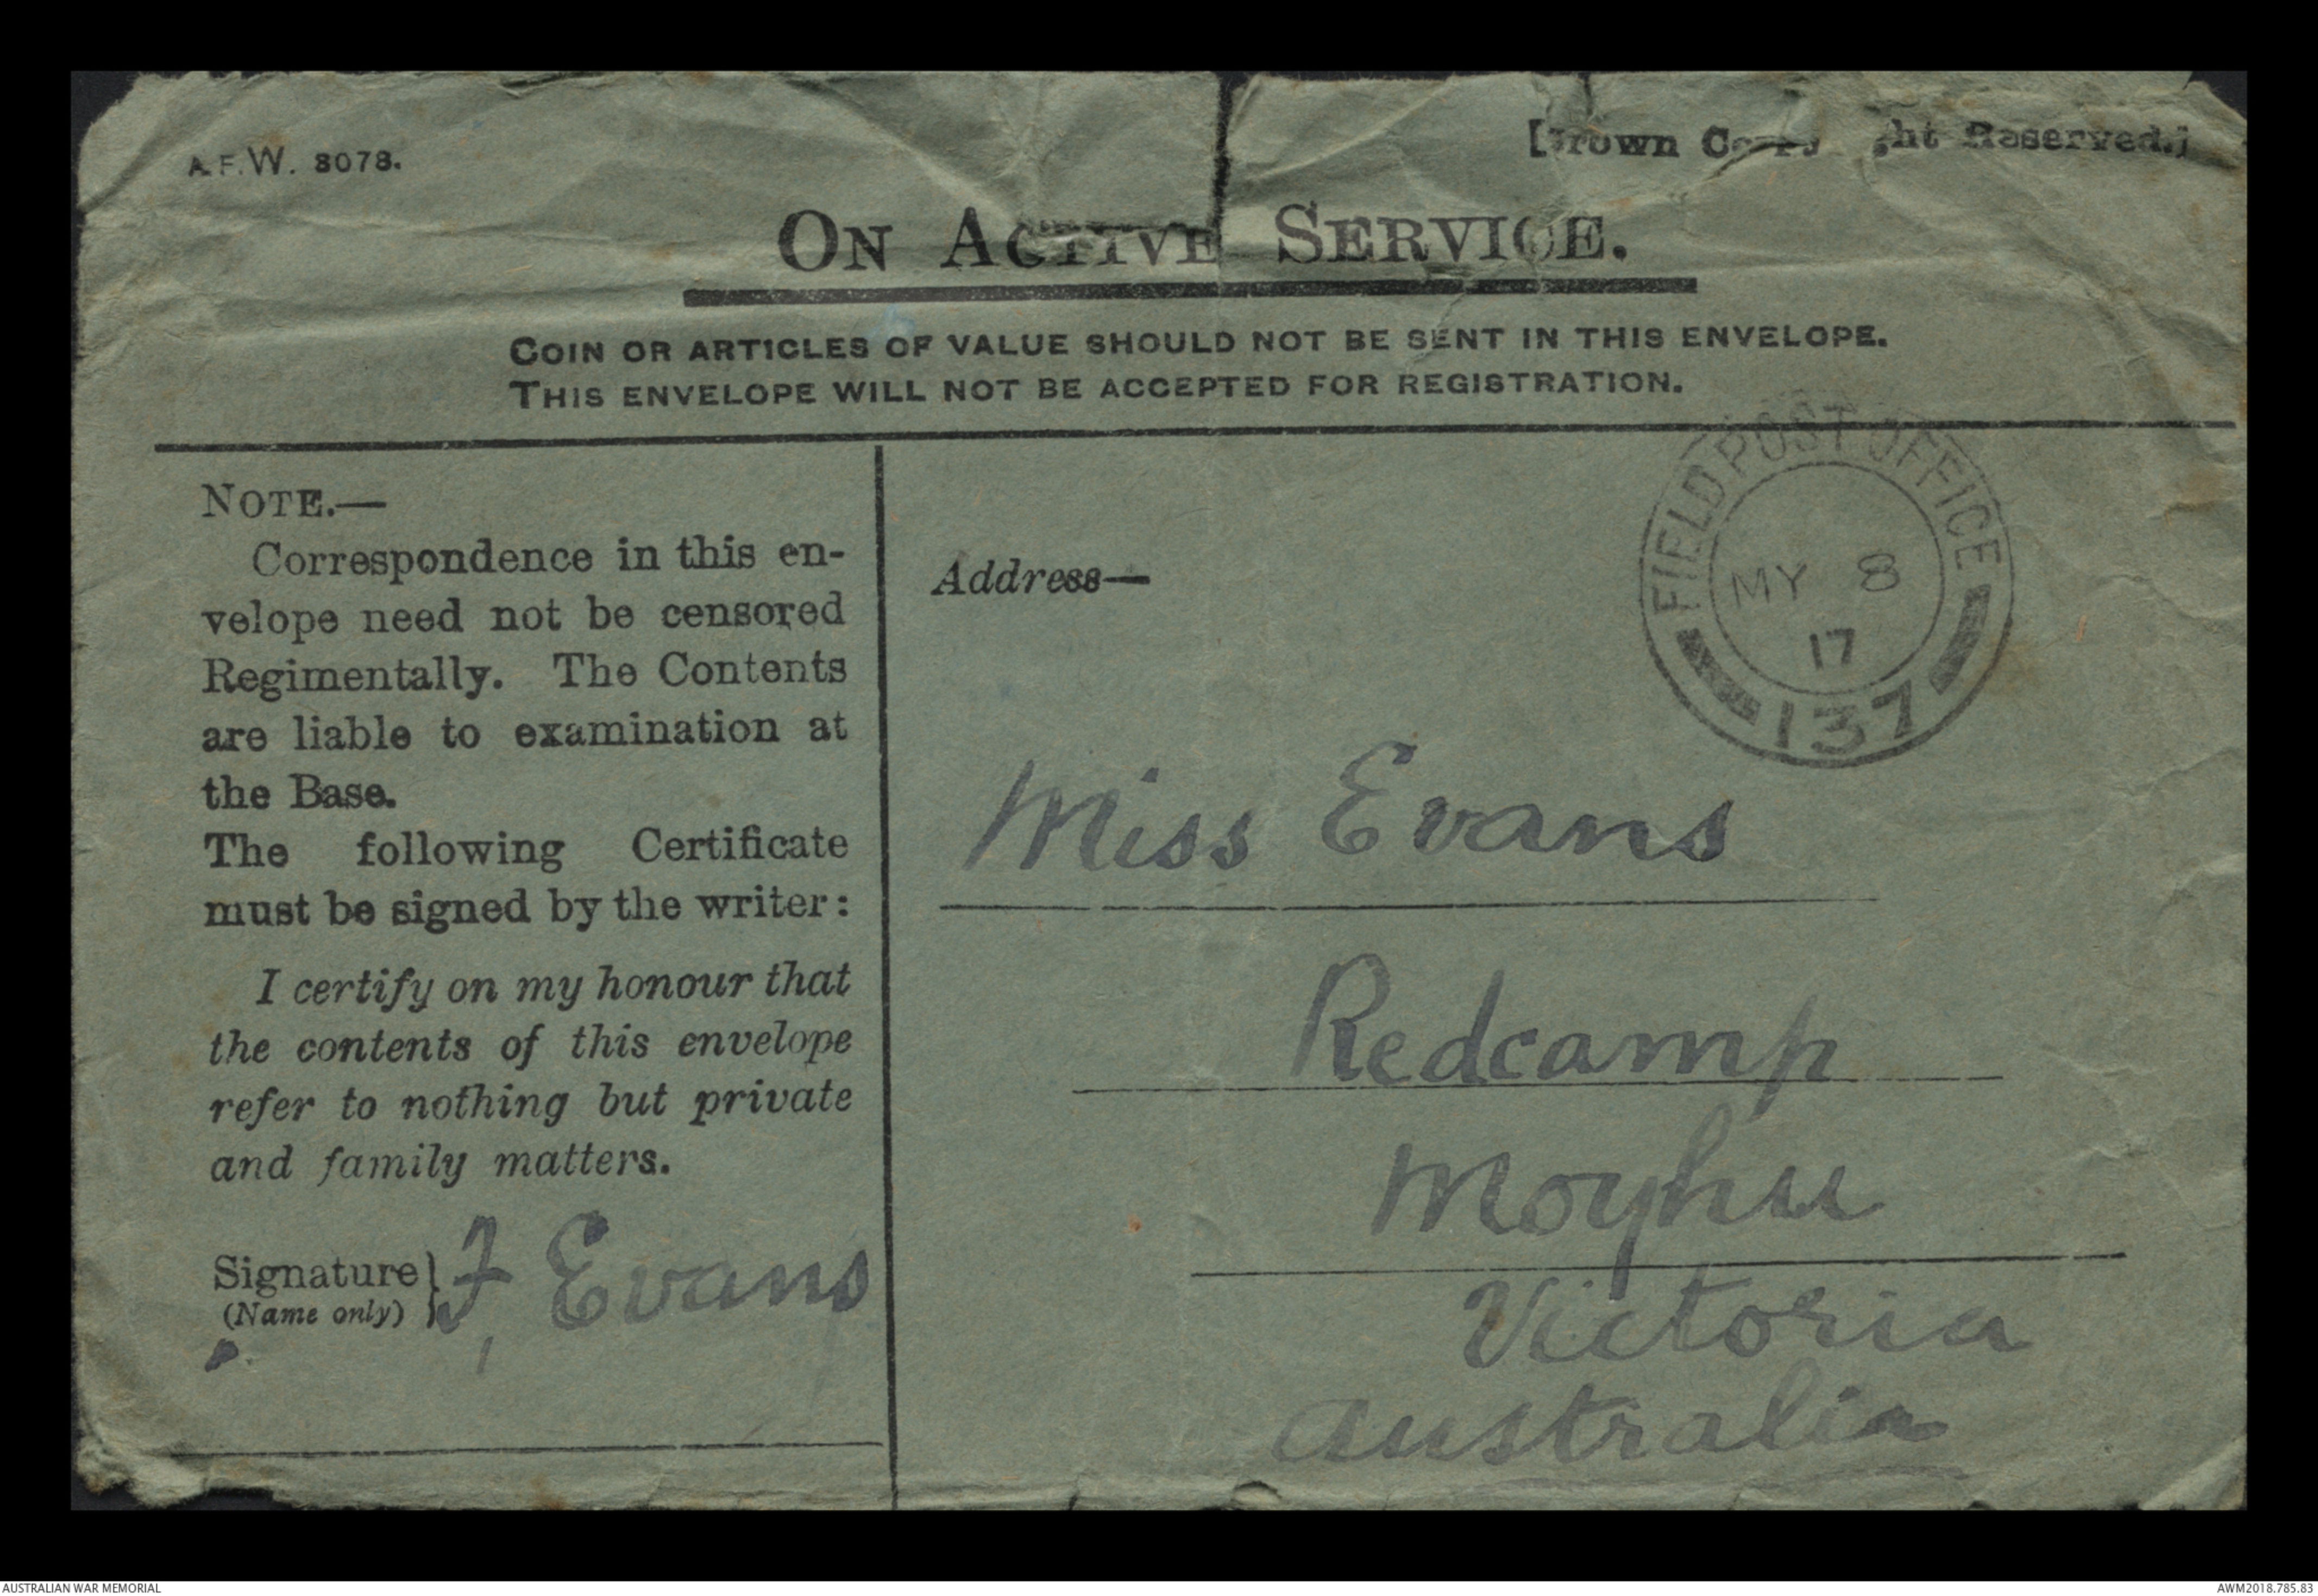 A.F.W. 3078.
[Crown Copyright Reserved.]
ON ACTIVE SERVICE.
COIN OR ARTICLES OF VALUE SHOULD NOT BE SENT IN THIS ENVELOPE.
THIS ENVELOPE WILL NOT BE ACCEPTED FOR REGISTRATION.
NOTE.—
Correspondence in this en-
velope need not be censored
Regimentally. The Contents
are liable to examination at
the Base.
The following Certificate
must be signed by the writer:
I certify on my honour that
the contents of this envelope
refer to nothing but private
and family matters.
Signature
(Name only)
F Evans
Address—
FIELD POST OFFICE
MY 8
17
137
Miss Evans
Redcamp
Moyhu
Victoria
Australia
AUSTRALIAN WAR MEMORIAL
AWM2018.785.83